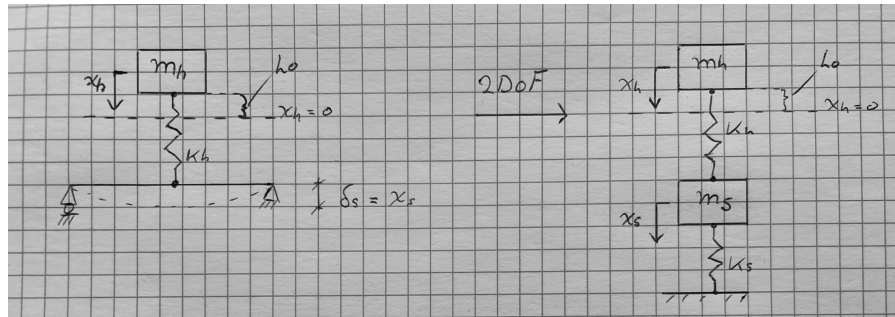 mh
xh
ho
xh = 0
Kh
δs = xs
2DoF
mh
xh
ho
xh = 0
Kh
ms
xs
Ks